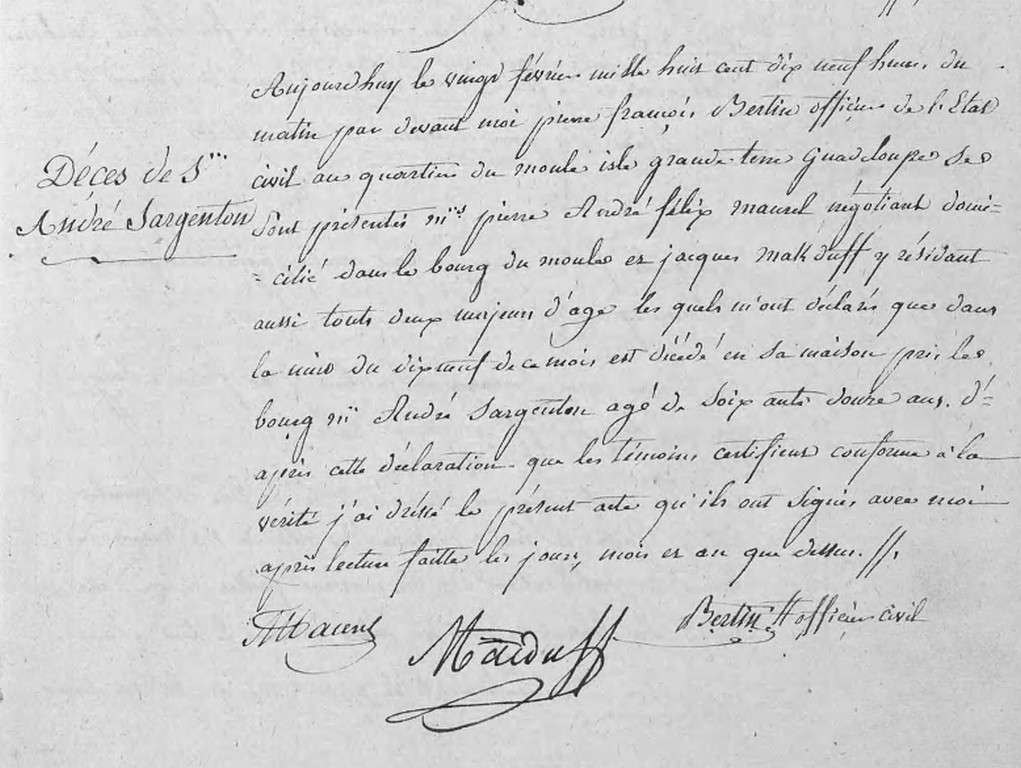 Déces de S.r
André Sargenton
Aujourdhuy le vingt février mille huit cent dix neuf heures du
matin par devant moi pierre françois Bertin officier de l'Etat
civil au quartier du moule isle grande terre Guadeloupe se
sont présentés m.rs pierre André félix maurel négotiant domi=
=cilié dans le bourg du moule et jacques makduff y résidant
aussi touts deux majeurs d'age les quels m'ont déclarés que dans
la nuit du dix neuf de ce mois est décédé en sa maison près le
bourg m.r André Sargenton agé de soixante douze ans. d'=
après cette déclaration que les témoins certifient conforme à la
vérité j'ai dressé le présent acte qu'ils ont signés avec moi
après lecture faitte les jour, mois et an que dessus. //.
Bertin officier civil
Macduff